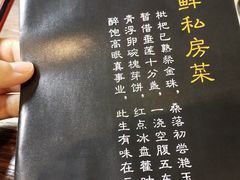 鲜私房菜
枇杷已熟粲金珠,桑落初尝滟玉
暂借垂莲十分盏,一浇空腹五车
青浮卵碗槐芽饼,红点冰盘藿
醉饱高眠真事业,此生有味在